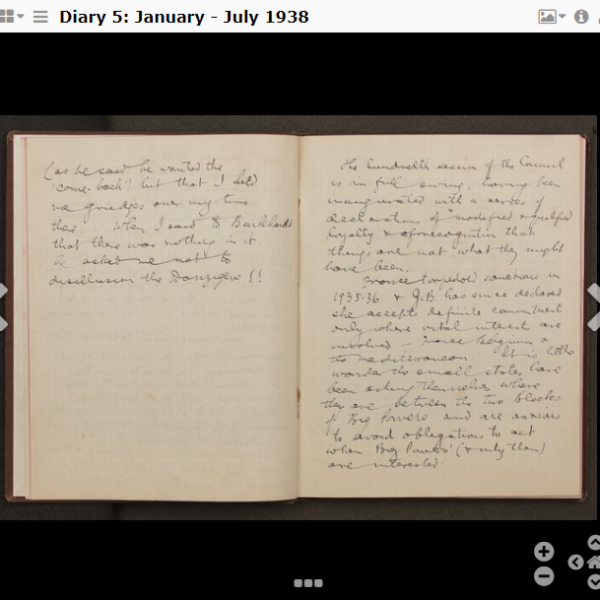 Diary 5: January - July 1938
(as he said he wanted the
'come-back') but that I held
no grudges over my time
there. When I said to Burckhardt
that there was nothing in it
he asked me not to
disillusion the Danzigers !!
The hundredth session of the Council
is in full swing, having been
inaugurated with a series of
declarations of "modified & qualified
loyalty & a recognition that
things are not what they might
have been.
France torpedoed sanctions in
1935-36 & G.B. has since declared
she accepts definite commitment
only where vital interests are
involved - France Belgium &
the Mediterranean. It is little
wonder the small states have
been asking themselves where
they are between the two Blocks
of Big Powers and are anxious
to avoid obligations to act
when Big Powers' (& only then)
are interested